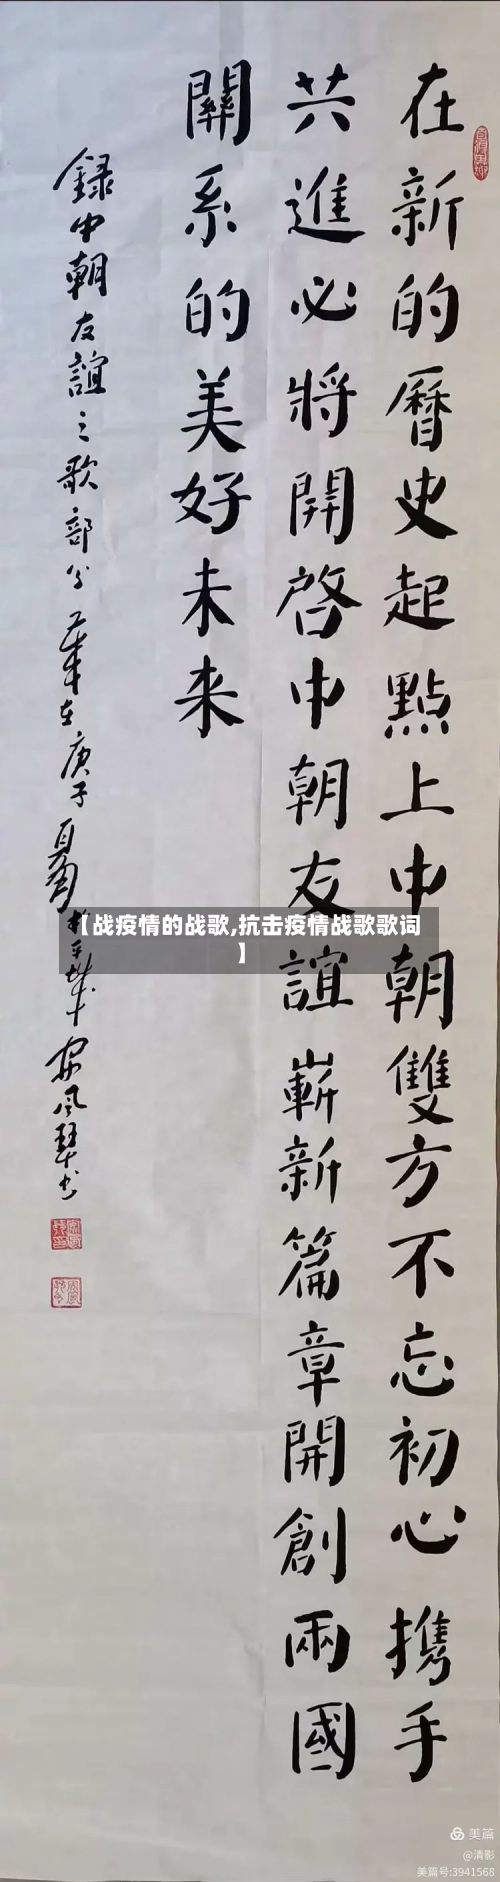 在新的曆史起點上中朝雙方不忘初心携手
共進必將開啓中朝友誼嶄新篇章開創兩國
關系的美好未来
録中朝友誼之歌部分 華在庚子夏於平城 安风琴书
【战疫情的战歌,抗击疫情战歌歌词
】
美篇
@清影
美篇号:3941568